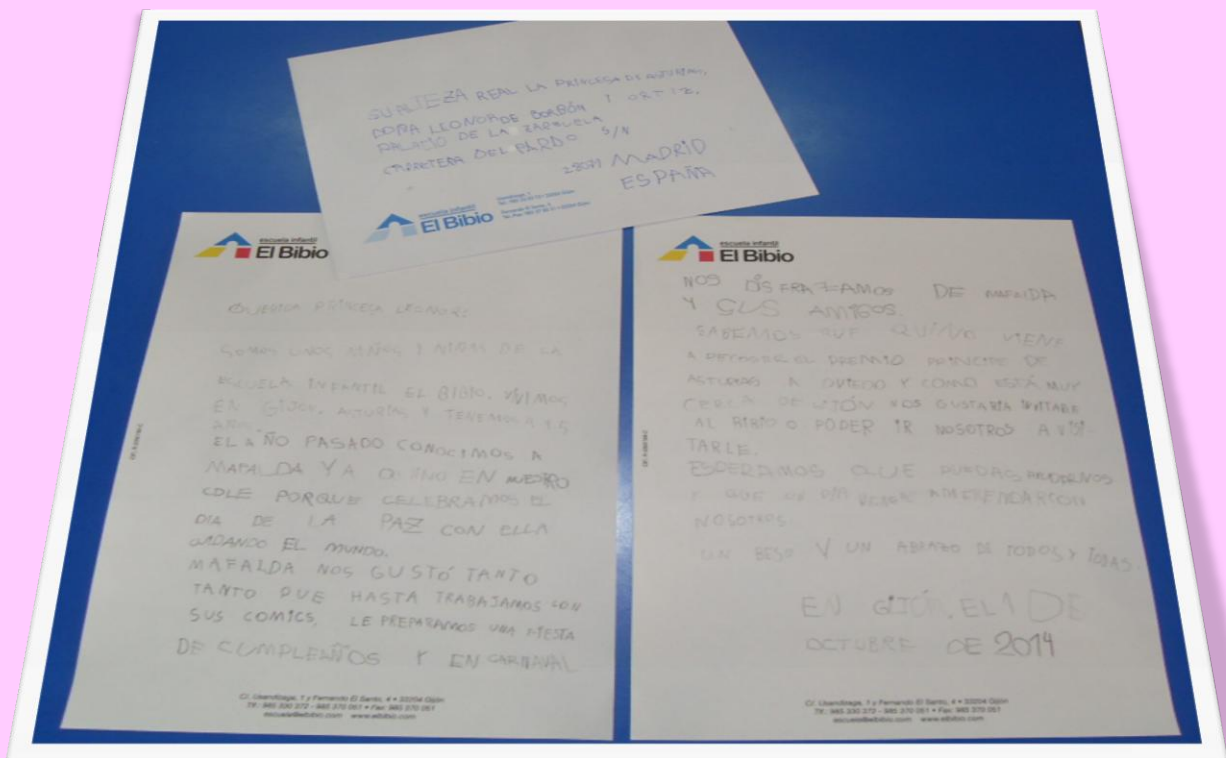 SU ALTEZA REAL LA PRINCESA DE ASTURIAS,
DOÑA LEONOR DE BORBÓN Y ORTIZ.
PALACIO DE LA ZARZUELA
CARRETERA DEL PARDO S/N
28071 MADRID
ESPAÑA
escuela infantil
El Bibio
escuela infantil
El Bibio
QUERIDA PRINCESA LEONOR:
SOMOS UNOS NIÑOS Y NIÑAS DE LA
ESCUELA INFANTIL EL BIBIO. VIVIMOS
EN GIJÓN, ASTURIAS Y TENEMOS 4 Y 5
AÑOS.
EL AÑO PASADO CONOCIMOS A
MAFALDA Y A QUINO EN NUESTRO
COLE PORQUE CELEBRAMOS EL
DIA DE LA PAZ CON ELLA
CUIDANDO EL MUNDO.
MAFALDA NOS GUSTÓ TANTO
TANTO QUE HASTA TRABAJAMOS CON
SUS COMICS. LE PREPARAMOS UNA FIESTA
DE CUMPLEAÑOS Y EN CARNAVAL
C/. Usandizaga, 1 y Fernando El Santo, 4 • 33204 Gijón
Tlf.: 985 330 372 - 985 370 051 • Fax: 985 370 051
escuela@elbibio.com www.elbibio.com
escuela infantil
El Bibio
NOS DISFRAZAMOS DE MAFALDA
Y SUS AMIGOS.
SABEMOS QUE QUINO VIENE
A RECOGER EL PREMIO PRINCIPE DE
ASTURIAS A OVIEDO Y COMO ESTÁ MUY
CERCA DE GIJÓN NOS GUSTARIA INVITARLE
AL BIBIO O PODER IR NOSOTROS A VISI
TARLE.
ESPERAMOS QUE PUEDAS AYUDARNOS
Y QUE A MERENDAR CON
NOSOTROS.
UN BESO Y UN ABRAZO DE TODOS Y TODAS.
EN GIJÓN, EL 1 DE
OCTUBRE DE 2014
C/. Usandizaga, 1 y Fernando El Santo, 4 • 33204 Gijón
Tlf.: 985 330 372 - 985 370 051 • Fax: 985 370 051
escuela@elbibio.com www.elbibio.com